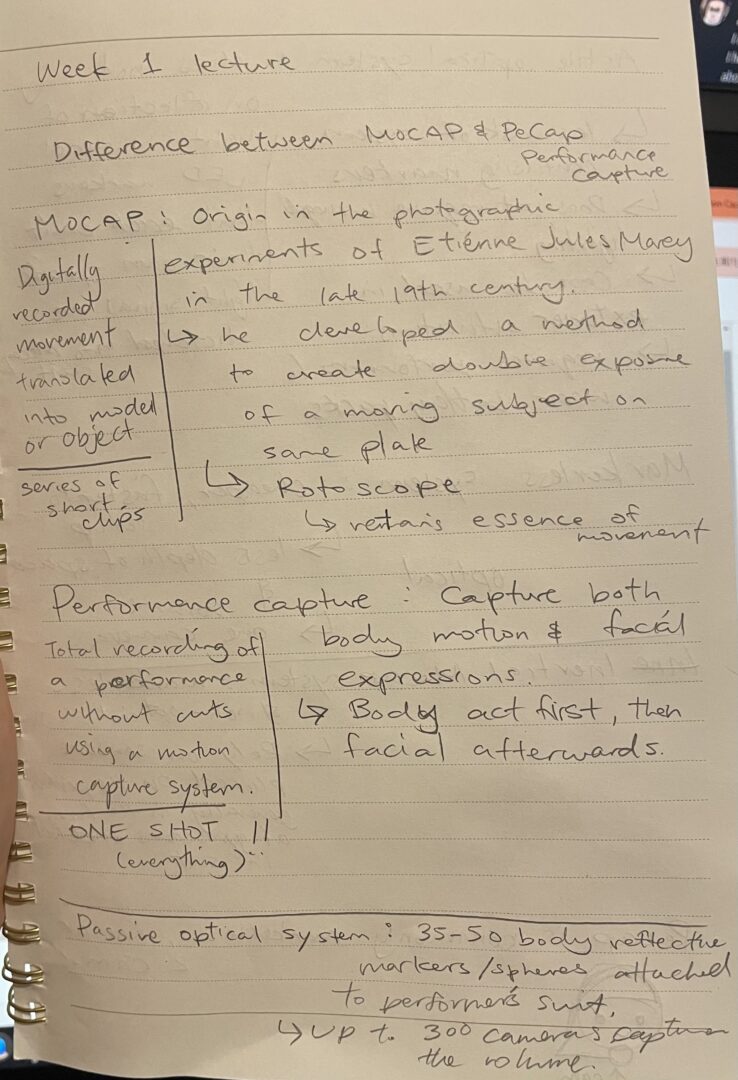 Week 1 lecture
Difference between MOCAP & PeCap
Performance
Capture
MOCAP : Origin in the photographic
experiments of Etiénne Jules Marey
in the late 19th century.
↳ he developed a method
to create double exposure
of a moving subject on
same plate
↳ Rotoscope
↳ retains essence of
movement
Digitally
recorded
movement
translated
into model
or object
series of
short
clips
Performance capture : Capture both
body motion & facial
expressions.
↳ Body act first, then
facial afterwards.
Total recording of
a performance
without cuts
using a motion
capture system.
ONE SHOT !!
(everything)
Passive optical system : 35-50 body reflective
markers/spheres attached
to performer's suit.
↳ Up to 300 cameras capture
the volume.